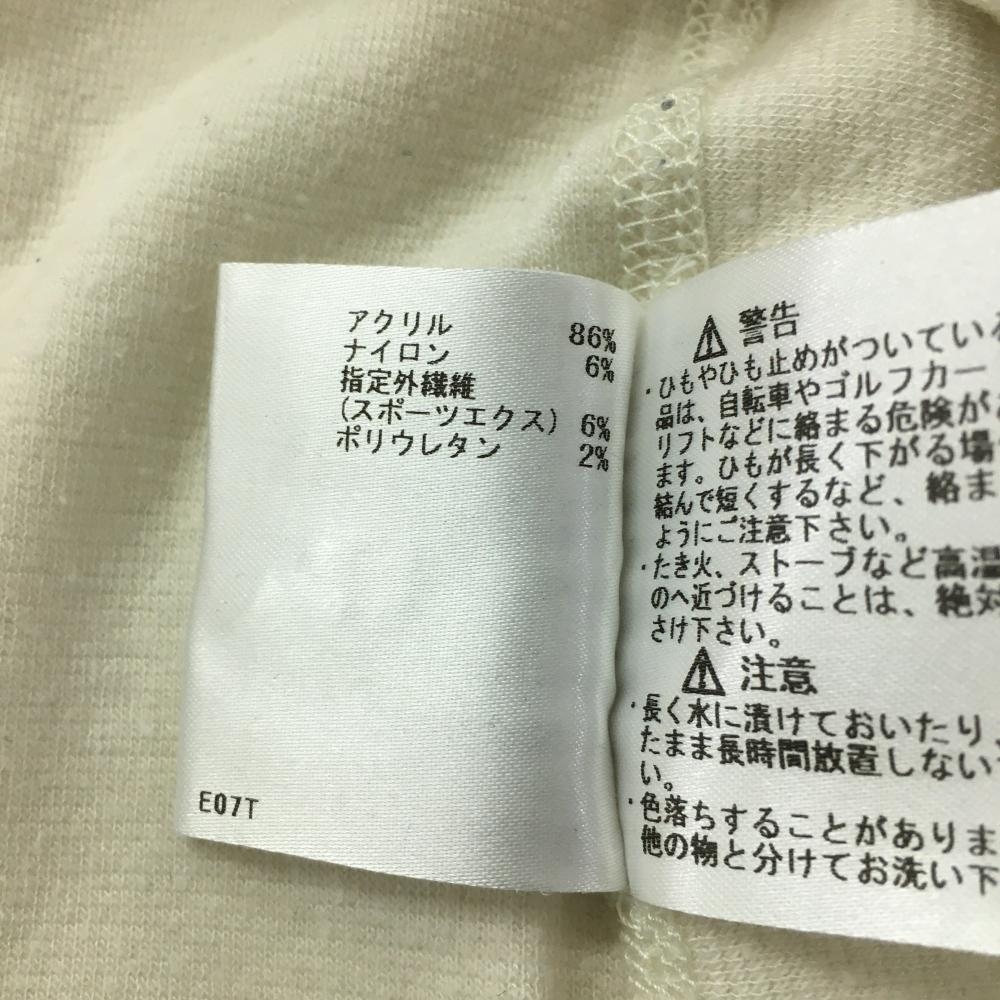 アクリル 86%
ナイロン 6%
指定外繊維
(スポーツエクス) 6%
ポリウレタン 2%
E07T
警告
・ひもやひも止めがついている
品は、自転車やゴルフカー
リフトなどに絡まる危険が
ます。ひもが長く下がる場
結んで短くするなど、絡ま
ようにご注意下さい。
・たき火、ストーブなど高温
のへ近づけることは、絶対
さけ下さい。
注意
・長く水に漬けておいたり、
たまま長時間放置しない
い。
・色落ちすることがありま
他の物と分けてお洗い下